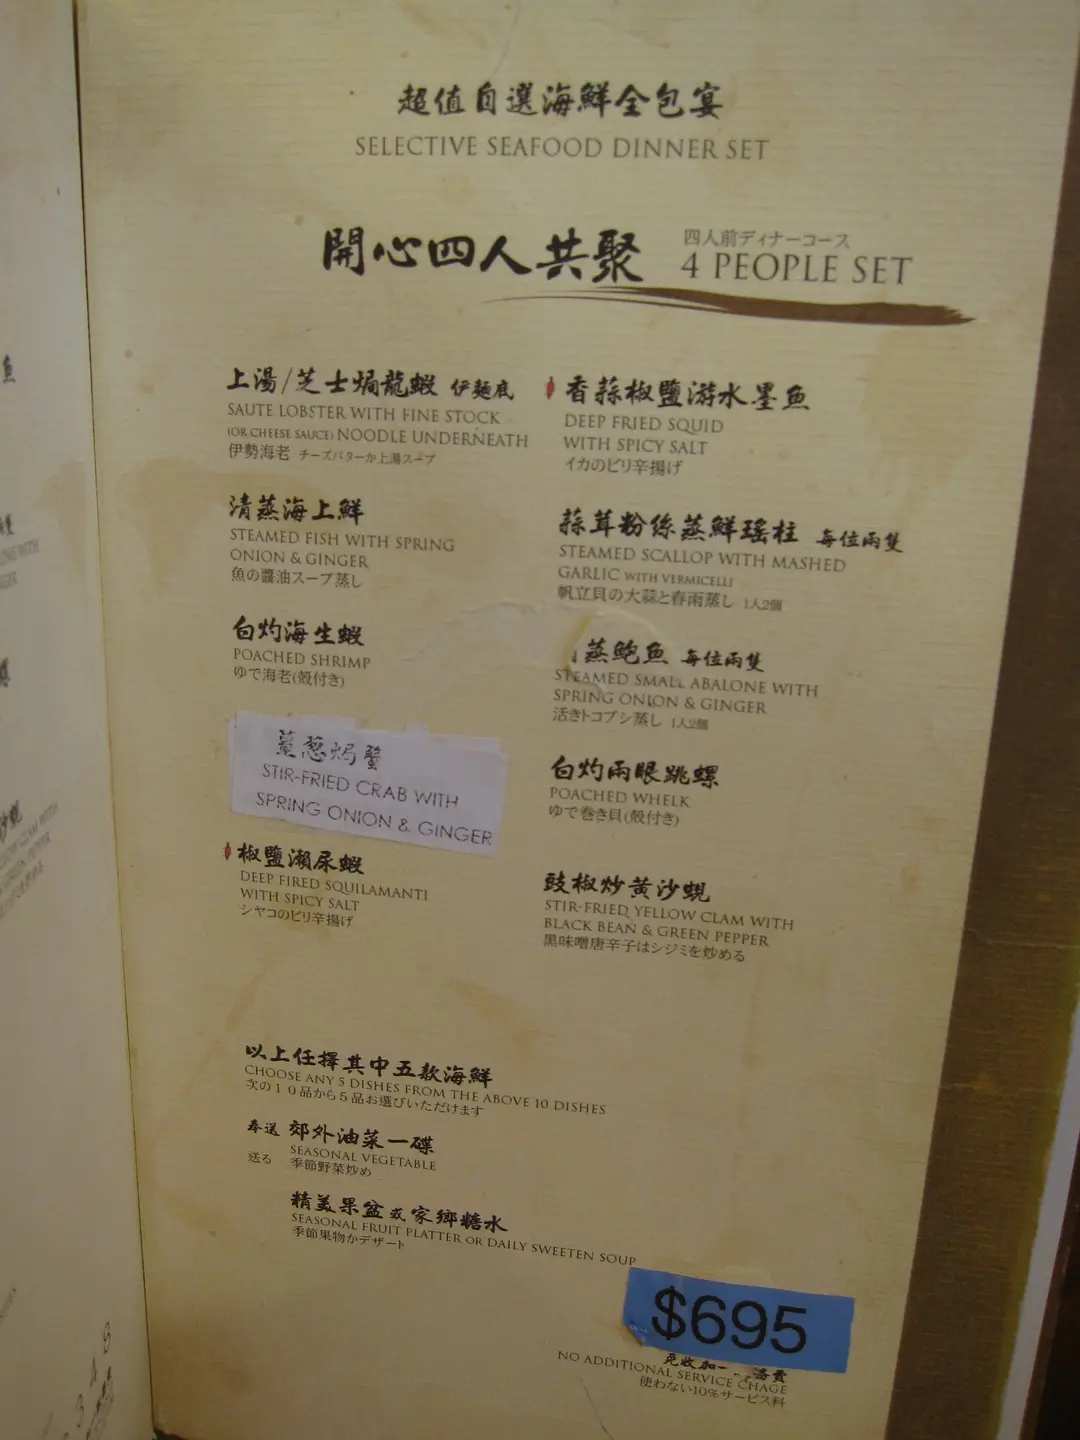 超值自選海鮮全包宴
SELECTIVE SEAFOOD DINNER SET
開心四人共聚
四人前ディナーコース
4 PEOPLE SET
上湯/芝士焗龍蝦 伊麵底
SAUTE LOBSTER WITH FINE STOCK
(OR CHEESE SAUCE) NOODLE UNDERNEATH
伊勢海老 チーズバターか上湯スープ
清蒸海上鮮
STEAMED FISH WITH SPRING
ONION & GINGER
魚の醬油スープ蒸し
白灼海生蝦
POACHED SHRIMP
ゆで海老(殼付き)
薑葱焗蟹
STIR-FRIED CRAB WITH
SPRING ONION & GINGER
椒鹽瀨尿蝦
DEEP FIRED SQUILAMANTI
WITH SPICY SALT
シヤコのピリ辛揚げ
香蒜椒鹽游水墨魚
DEEP FRIED SQUID
WITH SPICY SALT
イカのピリ辛揚げ
蒜茸粉絲蒸鮮瑤柱 每位兩隻
STEAMED SCALLOP WITH MASHED
GARLIC WITH VERMICELLI
帆立貝の大蒜と春雨蒸し 1人2個
蒸鮑魚 每位兩隻
STEAMED SMALL ABALONE WITH
SPRING ONION & GINGER
活きトコブシ蒸し 1人2個
白灼兩眼跳螺
POACHED WHELK
ゆで巻き貝(殼付き)
豉椒炒黃沙蜆
STIR-FRIED YELLOW CLAM WITH
BLACK BEAN & GREEN PEPPER
黒味噌唐辛子はシジミを炒める
以上任擇其中五款海鮮
CHOOSE ANY 5 DISHES FROM THE ABOVE 10 DISHES
次の10品から5品お選びいただけます
奉送 郊外油菜一碟
SEASONAL VEGETABLE
送る 季節野菜炒め
精美果盆或家鄉糖水
SEASONAL FRUIT PLATTER OR DAILY SWEETEN SOUP
季節果物かデザート
$695
免收加一
NO ADDITIONAL SERVICE CHAGE
使わない10%サービス料